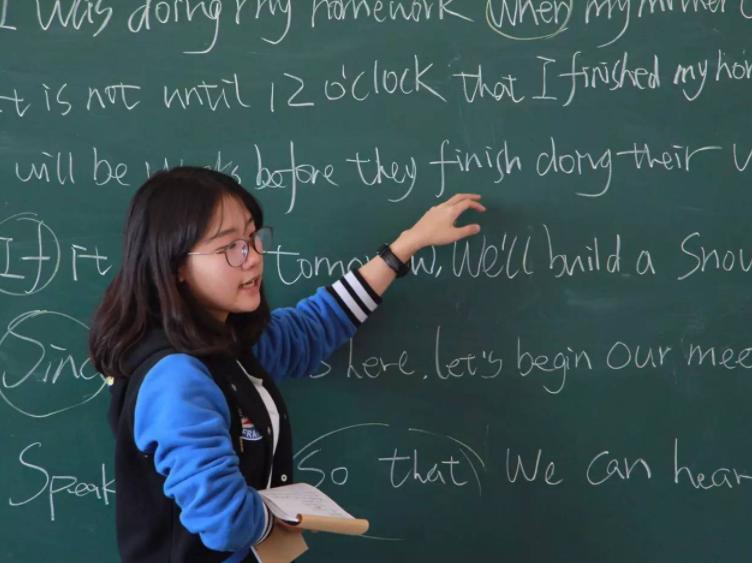 I was doing my homework when my mother
t is not until 12 o'clock that I finished my hom
will be weeks before they finish doing their w
If it tomorrow, We'll build a snow
Sinc s here, let's begin our mee
Speak so that we can hear